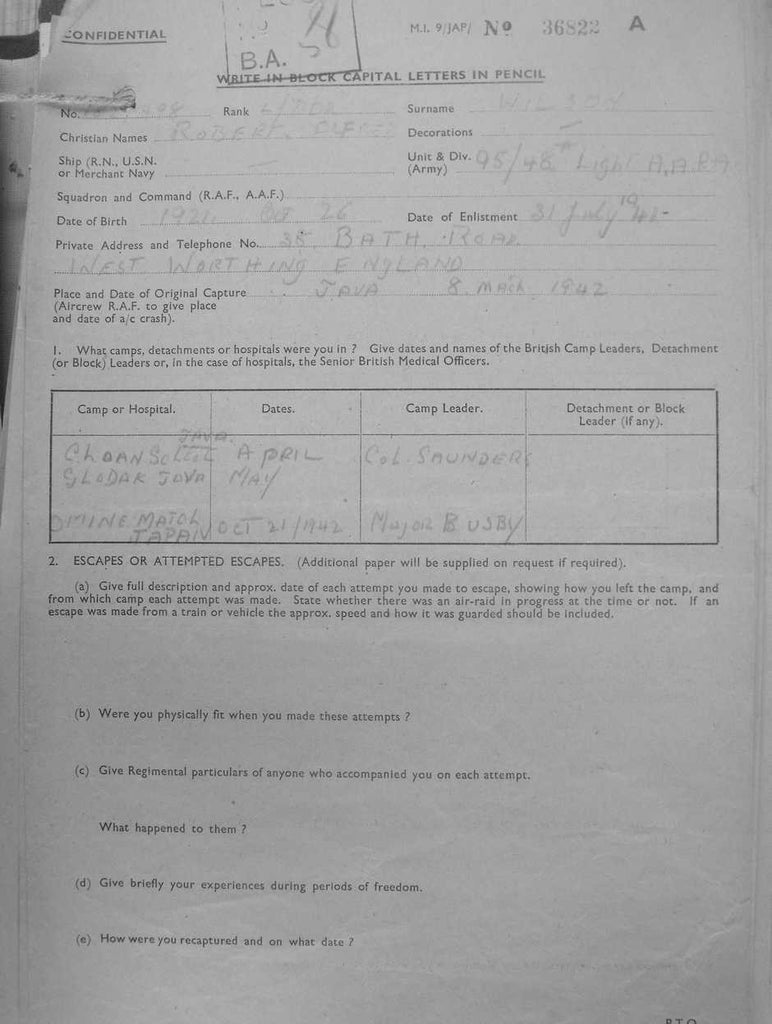 CONFIDENTIAL
M.I. 9/JAP/ No 36822 A
B.A.
WRITE IN BLOCK CAPITAL LETTERS IN PENCIL
No. Rank Surname WILSON
Christian Names ROBERT Decorations —
Ship (R.N., U.S.N. or Merchant Navy —
Unit & Div. (Army) 95/48th Light A.A.RA
Squadron and Command (R.A.F., A.A.F.)
Date of Birth 1921 Oct 26 Date of Enlistment 31 July
Private Address and Telephone No. 35, BATH ROAD
WEST WORTHING ENGLAND
Place and Date of Original Capture JAVA 8 MACH 1942
(Aircrew R.A.F. to give place
and date of a/c crash).
1. What camps, detachments or hospitals were you in ? Give dates and names of the British Camp Leaders, Detachment
(or Block) Leaders or, in the case of hospitals, the Senior British Medical Officers.
Camp or Hospital. Dates. Camp Leader. Detachment or Block
Leader (if any).
JAVA
APRIL COL. SAUNDERS
GLODAK JAVA MAY
OMINE MATCH OCT 21/1942 Major BUSBY
JAPAN
2. ESCAPES OR ATTEMPTED ESCAPES. (Additional paper will be supplied on request if required).
(a) Give full description and approx. date of each attempt you made to escape, showing how you left the camp, and
from which camp each attempt was made. State whether there was an air-raid in progress at the time or not. If an
escape was made from a train or vehicle the approx. speed and how it was guarded should be included.
(b) Were you physically fit when you made these attempts ?
(c) Give Regimental particulars of anyone who accompanied you on each attempt.
What happened to them ?
(d) Give briefly your experiences during periods of freedom.
(e) How were you recaptured and on what date ?
P.T.O.